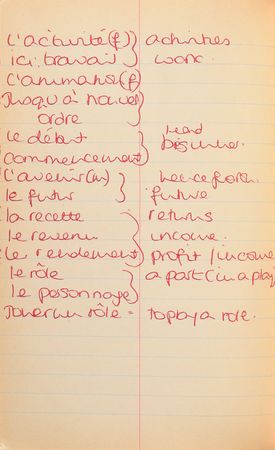 l'activité (f) } activities
ici: travail } work.
L'animation (f)
Jusqu'à nouvel
ordre
le début
head
commencement }
l'avenir (m) } henceforth.
le futur } future
la recette } returns
le revenu } income.
le rendement } profit / income
le rôle } a part (in a play
le personnage }
Jouer un rôle = to play a role.